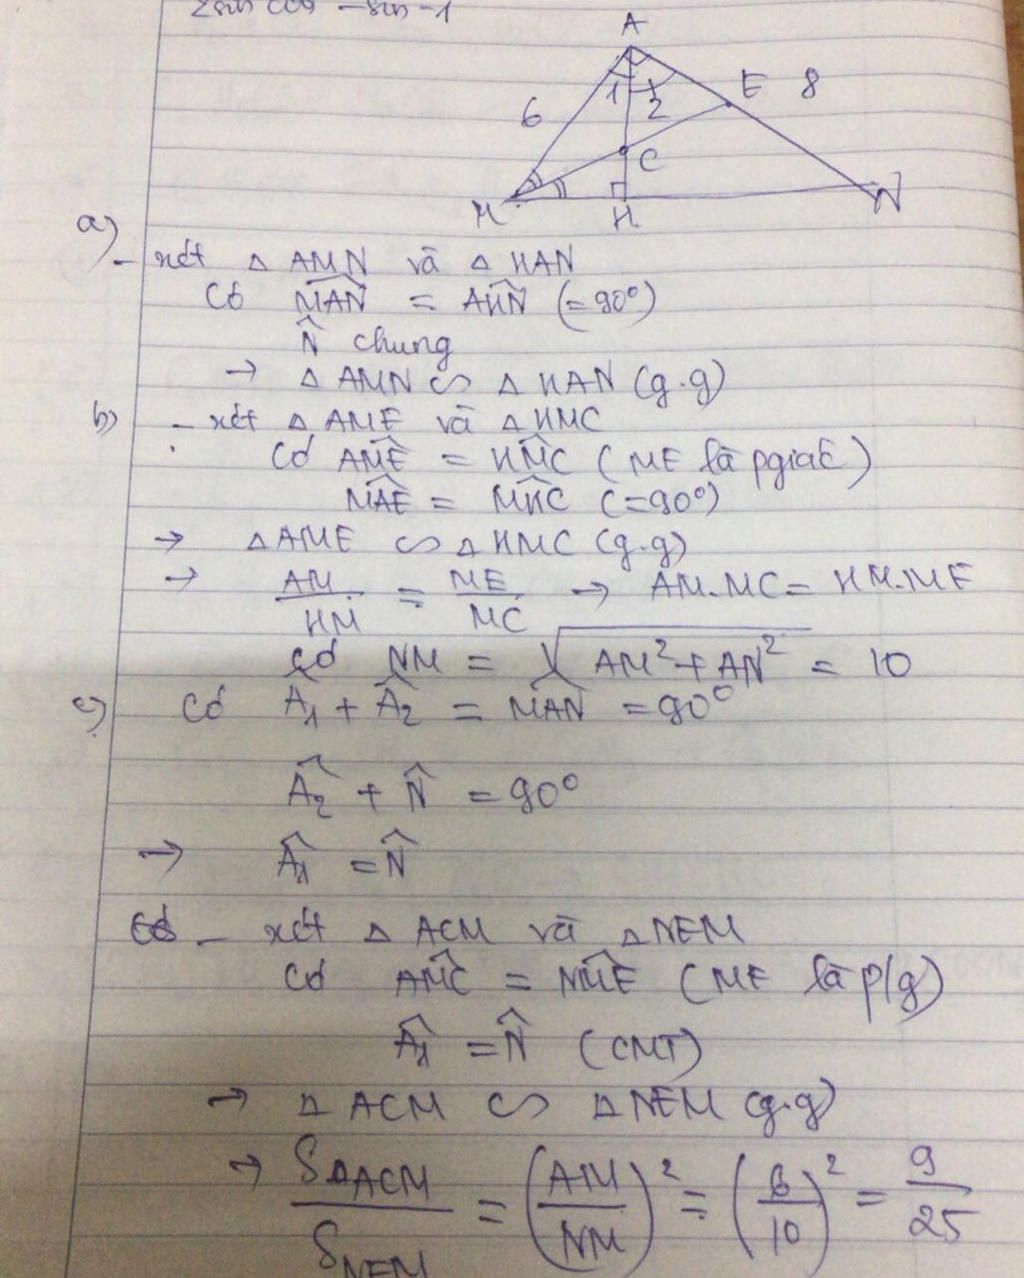 2sin cos - sin - 1
A
1 2
E 8
6
C
M
H
N
a)
- xét Δ AMN và Δ HAN
Có M̂AN = AĤN (=90°)
N̂ chung
→ Δ AMN ∽ Δ HAN (g.g)
b)
- xét Δ AME và Δ HMC
Có AM̂E = HM̂C (ME là pgiác)
MÂE = MĤC (=90°)
→ Δ AME ∽ Δ HMC (g.g)
→ AM/HM = ME/MC → AM.MC = HM.ME
Có NM = √(AM² + AN²) = 10
c) Có Â₁ + Â₂ = MÂN = 90°
Â₂ + N̂ = 90°
→ Â₁ = N̂
- xét Δ ACM và Δ NEM
Có AM̂C = NM̂E (ME là p/g)
Â₁ = N̂ (CMT)
→ Δ ACM ∽ Δ NEM (g.g)
→ SΔACM/SNEM = (AM/NM)² = (6/10)² = 9/25